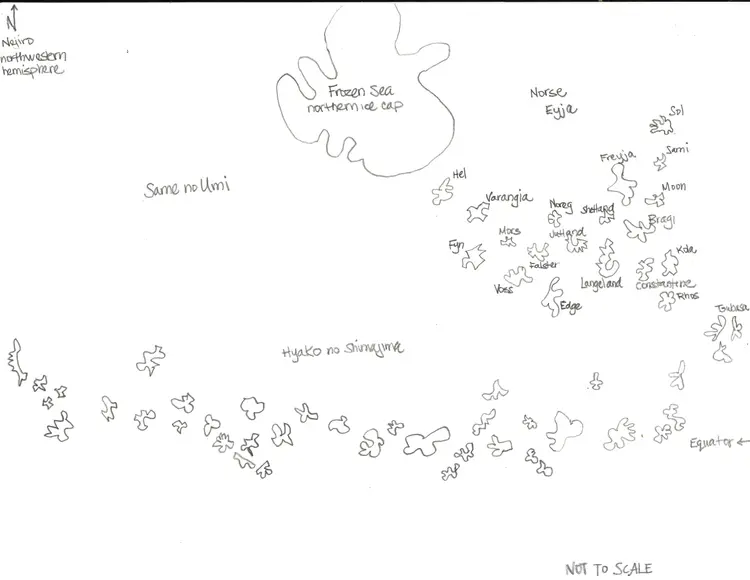 N
Nejiro
northwestern
hemisphere
Frozen Sea
northern ice cap
Norse
Eyja
Sol
Sami
Freyja
Moon
Hel
Varangia
Noreg
Shetland
Bragi
Same no Umi
Mors
Jutland
Fyn
Falster
Kola
Voss
Langeland
Constantine
Edge
Rhos
Tsubasa
Hyako no Shimajima
Equator
NOT TO SCALE